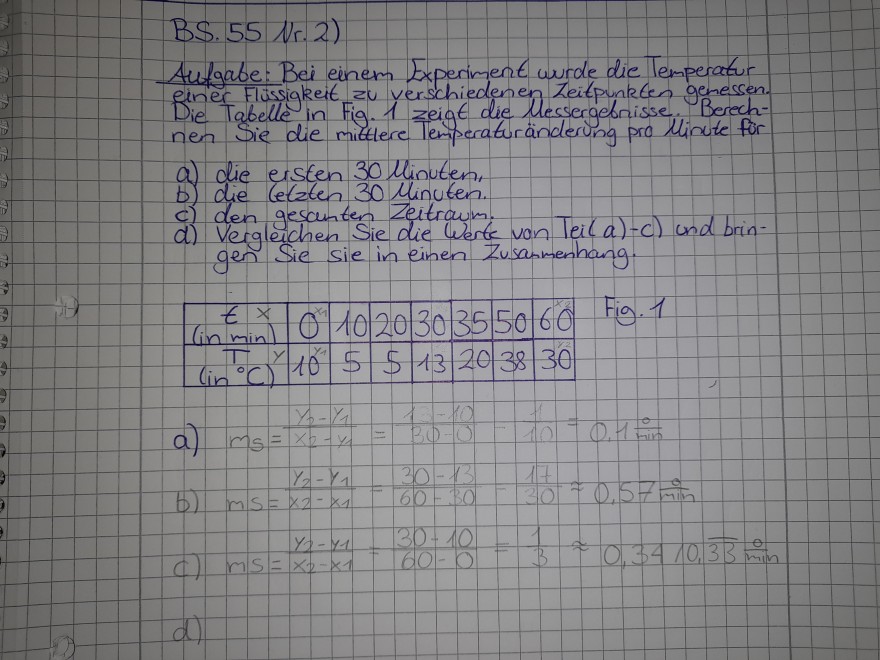 BS. 55 Nr. 2)
Aufgabe: Bei einem Experiment wurde die Temperatur
einer Flüssigkeit zu verschiedenen Zeitpunkten gemessen.
Die Tabelle in Fig. 1 zeigt die Messergebnisse. Berech-
nen Sie die mittlere Temperaturänderung pro Minute für
a) die ersten 30 Minuten,
b) die letzten 30 Minuten.
c) den gesamten Zeitraum.
d) Vergleichen Sie die Werte von Teil a)-c) und brin-
gen Sie sie in einen Zusammenhang.
t x (in min) 0 x1 10 20 30 35 50 60 x2 Fig. 1
T y (in °C) 10 y1 5 5 13 20 38 30 y2
a) ms = y2-y1 / x2-y1 = 13-10 / 30-0 = 1/10 = 0,1 °/min
b) ms = y2-y1 / x2-x1 = 30-13 / 60-30 = 17/30 ≈ 0,57 °/min
c) ms = y2-y1 / x2-x1 = 30-10 / 60-0 = 1/3 ≈ 0,34 10,33 °/min
d)